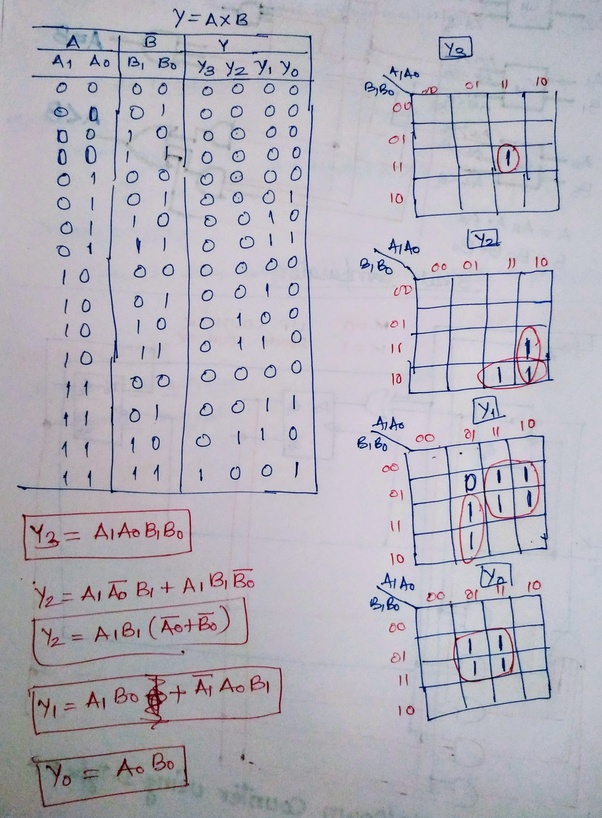 Y = A x B
A B Y
A1 A0 B1 B0 Y3 Y2 Y1 Y0
0 0 0 0 0 0 0 0
0 0 0 1 0 0 0 0
0 0 1 0 0 0 0 0
0 0 1 1 0 0 0 0
0 1 0 0 0 0 0 0
0 1 0 1 0 0 0 1
0 1 1 0 0 0 1 0
0 1 1 1 0 0 1 1
1 0 0 0 0 0 0 0
1 0 0 1 0 0 1 0
1 0 1 0 0 1 0 0
1 0 1 1 0 1 1 0
1 1 0 0 0 0 0 0
1 1 0 1 0 0 1 1
1 1 1 0 0 1 1 0
1 1 1 1 1 0 0 1
Y3 = A1A0B1B0
Y2 = A1A̅0̅ B1 + A1B1B̅0̅
Y2 = A1B1 (A̅0̅ + B̅0̅)
Y1 = A1 B0 + A̅1̅ A0 B1
Y0 = A0 B0
Y3
A1A0
B1B0 00 01 11 10
00
01
11 1
10
Y2
A1A0
B1B0 00 01 11 10
00
01
11 1
10 1 1
Y1
A1A0
B1B0 00 01 11 10
00
01 0 1 1
11 1 1 1
10 1
Y0
A1A0
B1B0 00 01 11 10
00
01 1 1
11 1 1
10